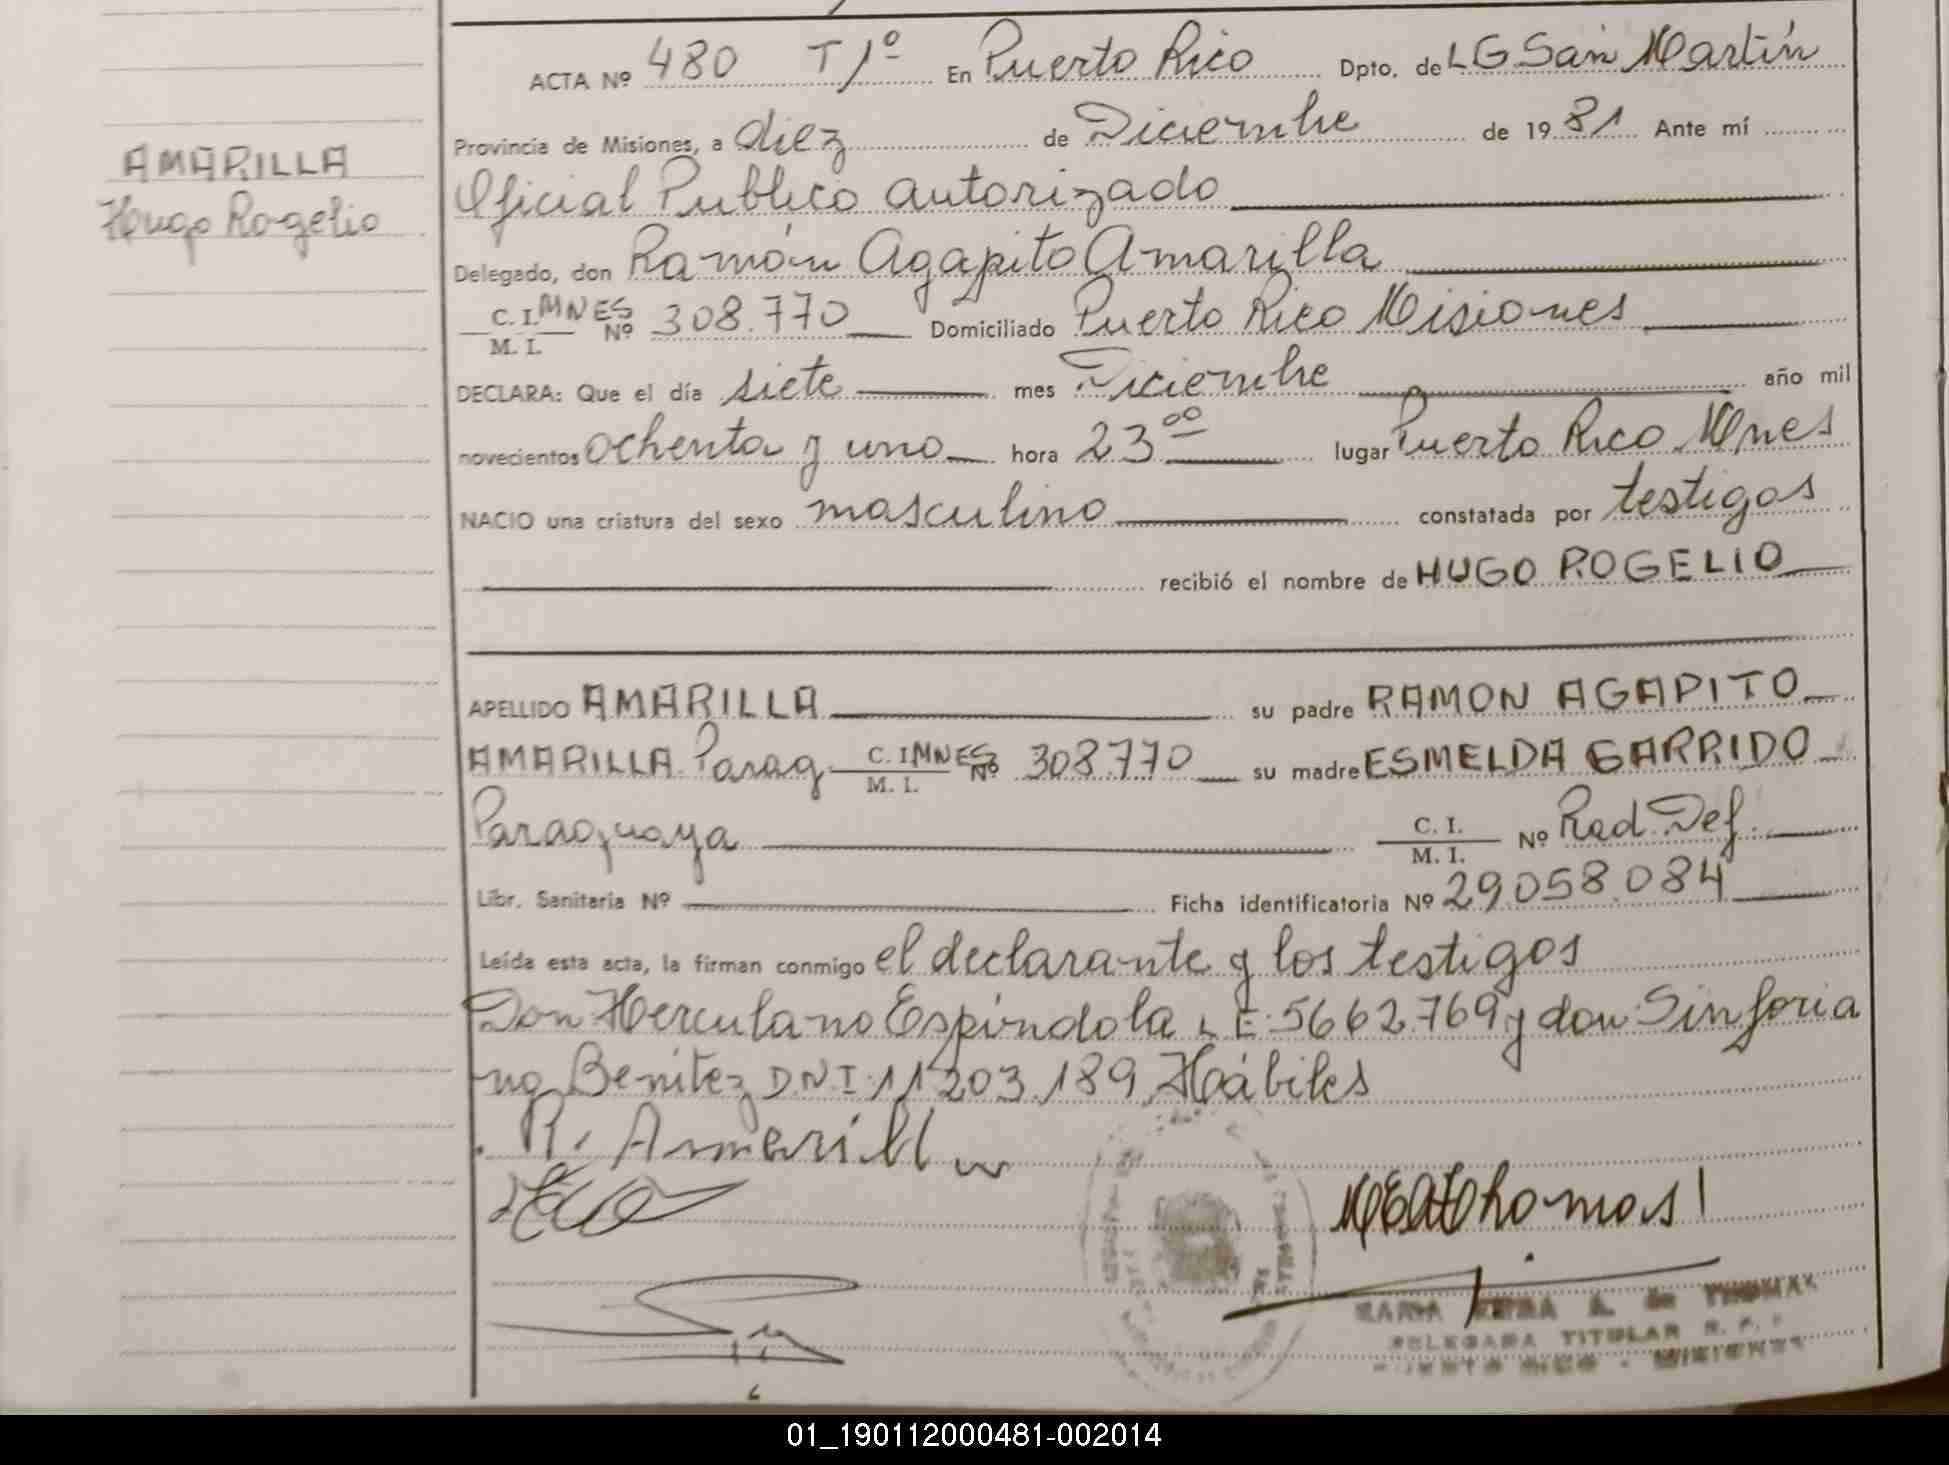 ACTA Nº 480 T1º En Puerto Rico Dpto. de LG San Martín
Provincia de Misiones, a diez de Diciembre de 1981 Ante mí
Oficial Publico autorizado
AMARILLA
Hugo Rogelio
Delegado, don Ramón Agapito Amarilla
C. I. MNES
M. I. Nº 308.770 Domiciliado Puerto Rico Misiones
DECLARA: Que el día siete mes Diciembre año mil
novecientos ochenta y uno hora 23 oo lugar Puerto Rico Mnes
NACIO una criatura del sexo masculino constatada por testigos
recibió el nombre de HUGO ROGELIO
APELLIDO AMARILLA su padre RAMON AGAPITO
AMARILLA Parag C. I. MNES M. I. Nº 308.770 su madre ESMELDA GARRIDO
Paraguaya C. I. M. I. Nº Rad. Def.
Libr. Sanitaria Nº Ficha identificatoria Nº 29.058.084
Leída esta acta, la firman conmigo el declarante y los testigos
Don Herculano Espíndola L E. 5662.769 y don Sinforia
no Benítez D.N.I. 11203.189 Hábiles
R. Amarill
MARIA A. de THOMAS
DELEGADA TITULAR R. P.
PUERTO RICO - MISIONES
01_190112000481-002014